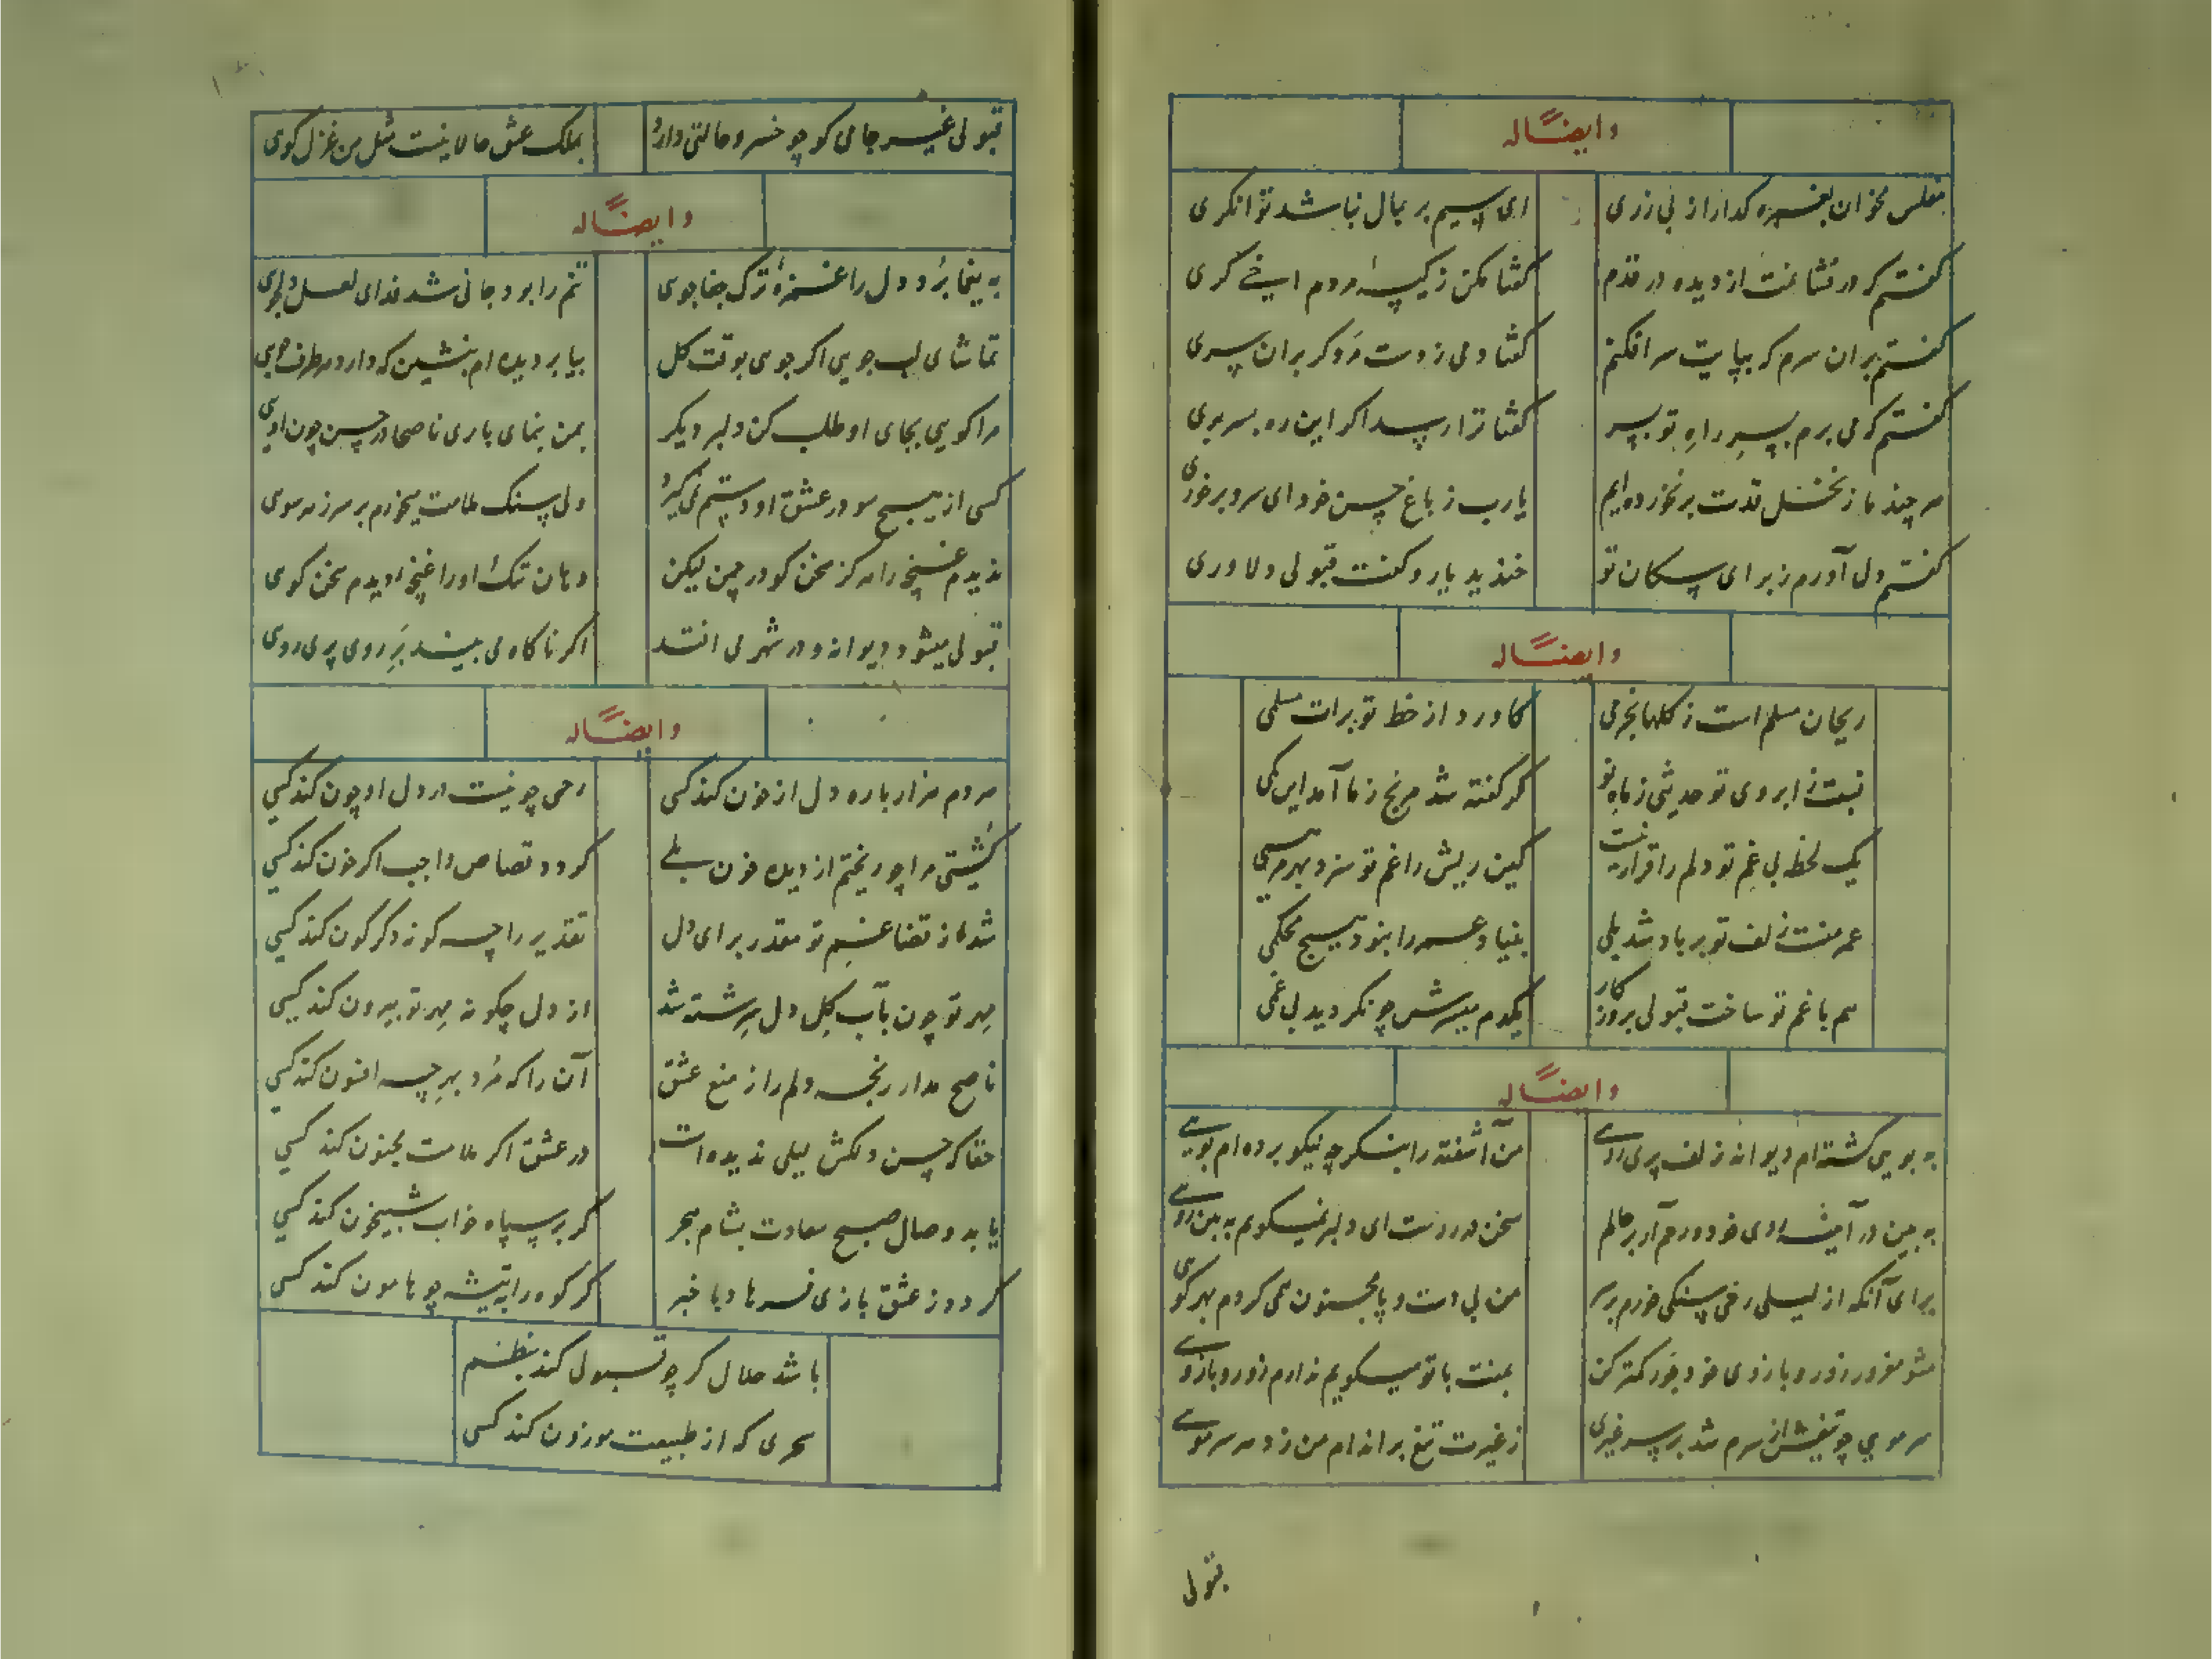 وایضاً له
مفلس مخوان بغمزه کدا را ز بی زری ای سیم بر بمال نباشد توانکری
کفتم کر در نشانمت از دیده در قدم کفتا مکن ز کیسهٔ مردم
کفتم بر ان سرم که بپایت سر افکنم کفتا دمی ز دست مرو کر بران سری
کفتم که می برم بسر راه تو بسر کفتا ترا رسد اکر این ره بسر بری
هر چند ما ز نخل قدت بر نخورده ایم یا رب ز باغ حسن خود ای سرو بر خوری
کفتم دل آورم ز برای سکان تو خندید یار و کفت قبولی دلاوری
وایضاً له
ریحان مسلم است ز کلها بخرمی کاورد از خط تو برات مسلمی
نسبت ز ابروی تو حدیثی ز ماه نو کر کفته شد مرنج ز ما آمد این کمی
یک لحظه بی غم تو دلم را قرار نیست کین ریش را غم تو سزد بهر مرهمی
عمر منت ز لف تو بر باد شد بلی بنیاد عمر را بنود هیچ محکمی
هم با غم تو ساخت قبولی بروز کار یکدم میسرش چو نکردید بی غمی
وایضاً له
به بویی کشته ام دیوانه ز لف پری رویی من آشفته را بنکر چه نیکو برده ام بویی
به بین در آینه روی خود و رحم آر بر حالم سخن در روست ای دلبر نمیکویم به بین رویی
برای آنکه از لیلی رخی سنکی خورم بر سر من بی دست و پا مجنون همی کردم بهر کویی
مشو مغرور زور و بازوی خود جور کمتر کن بمنت با تو میکویم ندارم زور و بازویی
سر مویی چو تیغش از سرم شد بر سر غیری ز غیرت تیغ بر اندام من زد هر سر مویی
قبولی
قبولی غیر جامی کو چو خسرو حالتی دارد بملک عشق حالا نیست مثل من غزل کوی
وایضاً له
به یغما برد دل را غمزهٔ ترک جفا جوی تنم را بود جانی شد فدای لعل
تماشای لب جویی اکر جوی بوقت کل بیا بر دیده ام بنشین که دارد هر طرف جوی
مرا کویی بجای او طلب کن دلبر دیکر بمن بنمای باری ناصحا در حسن چون اویی
کسی از هیچ سو در عشق او دستم نمی کیرد ولی سنک ملامت میخورم بر سر ز هر سوی
ندیدم غنچه را هرکز سخن کو در چمن لیکن دهان تنک او را غنچهٔ دیدم سخن کوی
قبولی میشود دیوانه و در شهر می افتد اکر ناکاه می بیند پری روی
وایضاً له
مردم هزار باره دل از خون کند کسی رحمی چو نیست در دل او چون کند کسی
کشتی مرا چو ریختم از دیده خون بلی کردد قصاص واجب اکر خون کند کسی
شد از قضا غم تو مقدر برای دل تقدیر را چه کونه دکرکون کند کسی
مهر تو چون بآب کل دل سرشته شد از دل چکونه مهر تو بیرون کند کسی
ناصح مدار رنجه دلم را ز منع عشق آن را که مرد بهر چه افسون کند کسی
حقا که حسن دلکش لیلی ندیده است در عشق اکر ملامت مجنون کند کسی
یابد وصال صبح سعادت بشام هجر کر بر سپاه خواب شبیخون کند کسی
کردد ز عشق بازی فرهاد با خبر کر کوه را بتیشه چو هامون کند کسی
باشد حلال کر چو قبولی کند بنظم
سحری که از طبیعت موزون کند کسی